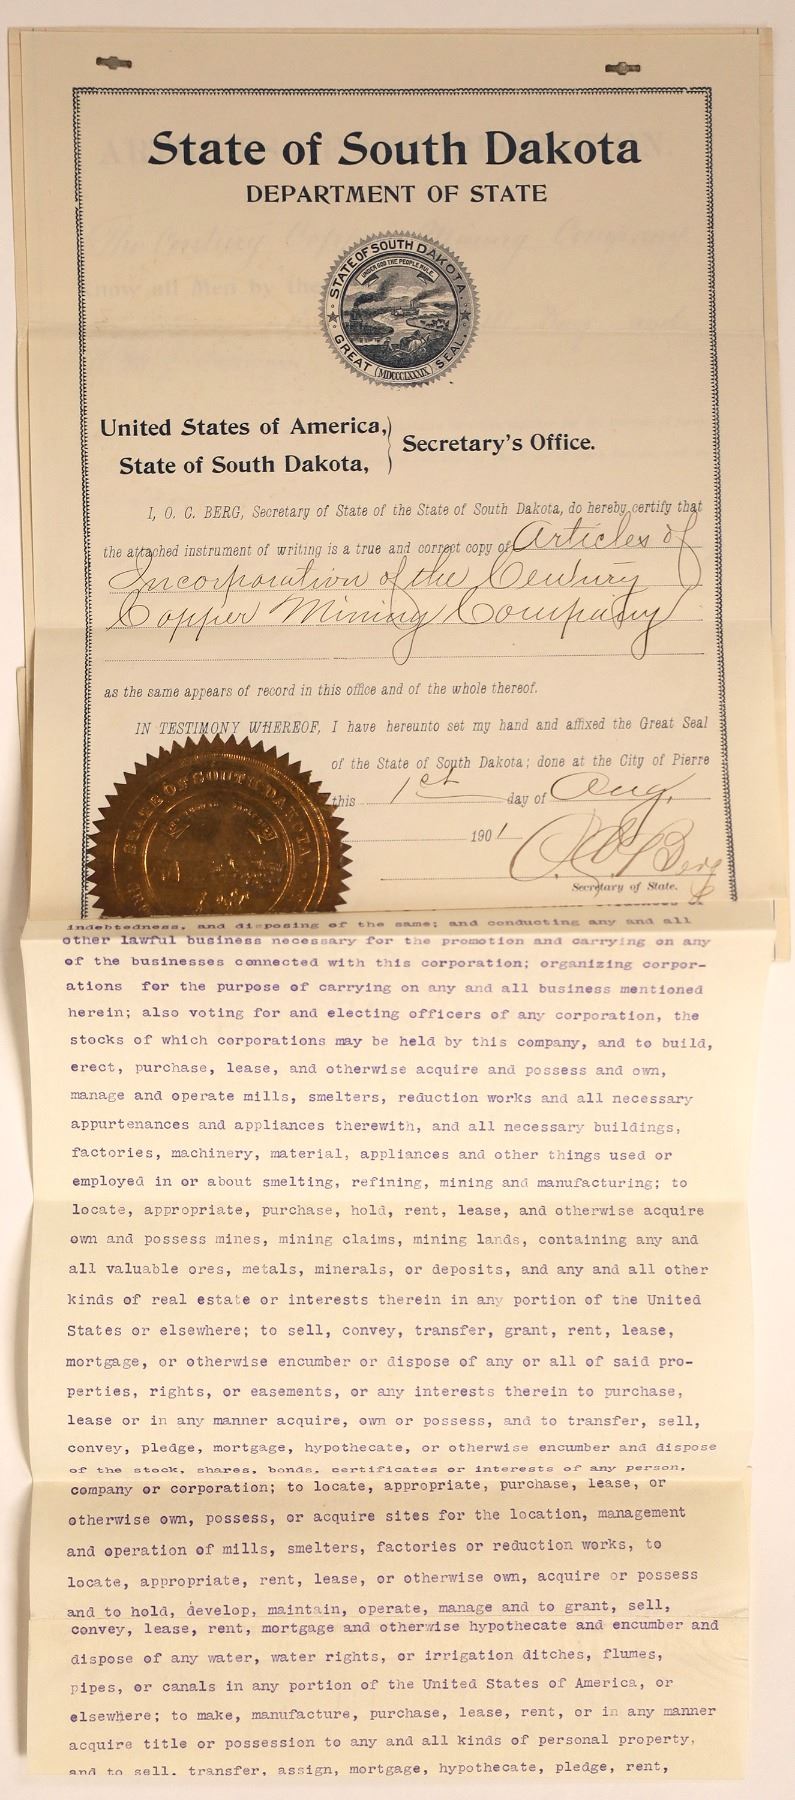 State of South Dakota
DEPARTMENT OF STATE
STATE OF SOUTH DAKOTA.
UNDER GOD THE PEOPLE RULE
GREAT SEAL.
MDCCCLXXXIX
United States of America,
State of South Dakota,
Secretary's Office.
I, O. C. BERG, Secretary of State of the State of South Dakota, do hereby certify that
the attached instrument of writing is a true and correct copy of Articles of
Incorporation of the Century
Copper Mining Company
as the same appears of record in this office and of the whole thereof.
IN TESTIMONY WHEREOF, I have hereunto set my hand and affixed the Great Seal
of the State of South Dakota; done at the City of Pierre
this 1st day of Aug.
1901
O. C. Berg
Secretary of State.
STATE OF SOUTH DAKOTA
indebtedness, and disposing of the same; and conducting any and all
other lawful business necessary for the promotion and carrying on any
of the businesses connected with this corporation; organizing corpor-
ations for the purpose of carrying on any and all business mentioned
herein; also voting for and electing officers of any corporation, the
stocks of which corporations may be held by this company, and to build,
erect, purchase, lease, and otherwise acquire and possess and own,
manage and operate mills, smelters, reduction works and all necessary
appurtenances and appliances therewith, and all necessary buildings,
factories, machinery, material, appliances and other things used or
employed in or about smelting, refining, mining and manufacturing; to
locate, appropriate, purchase, hold, rent, lease, and otherwise acquire
own and possess mines, mining claims, mining lands, containing any and
all valuable ores, metals, minerals, or deposits, and any and all other
kinds of real estate or interests therein in any portion of the United
States or elsewhere; to sell, convey, transfer, grant, rent, lease,
mortgage, or otherwise encumber or dispose of any or all of said pro-
perties, rights, or easements, or any interests therein to purchase,
lease or in any manner acquire, own or possess, and to transfer, sell,
convey, pledge, mortgage, hypothecate, or otherwise encumber and dispose
of the stock, shares, bonds, certificates or interests of any person,
company or corporation; to locate, appropriate, purchase, lease, or
otherwise own, possess, or acquire sites for the location, management
and operation of mills, smelters, factories or reduction works, to
locate, appropriate, rent, lease, or otherwise own, acquire or possess
and to hold, develop, maintain, operate, manage and to grant, sell,
convey, lease, rent, mortgage and otherwise hypothecate and encumber and
dispose of any water, water rights, or irrigation ditches, flumes,
pipes, or canals in any portion of the United States of America, or
elsewhere; to make, manufacture, purchase, lease, rent, or in any manner
acquire title or possession to any and all kinds of personal property,
and to sell, transfer, assign, mortgage, hypothecate, pledge, rent,